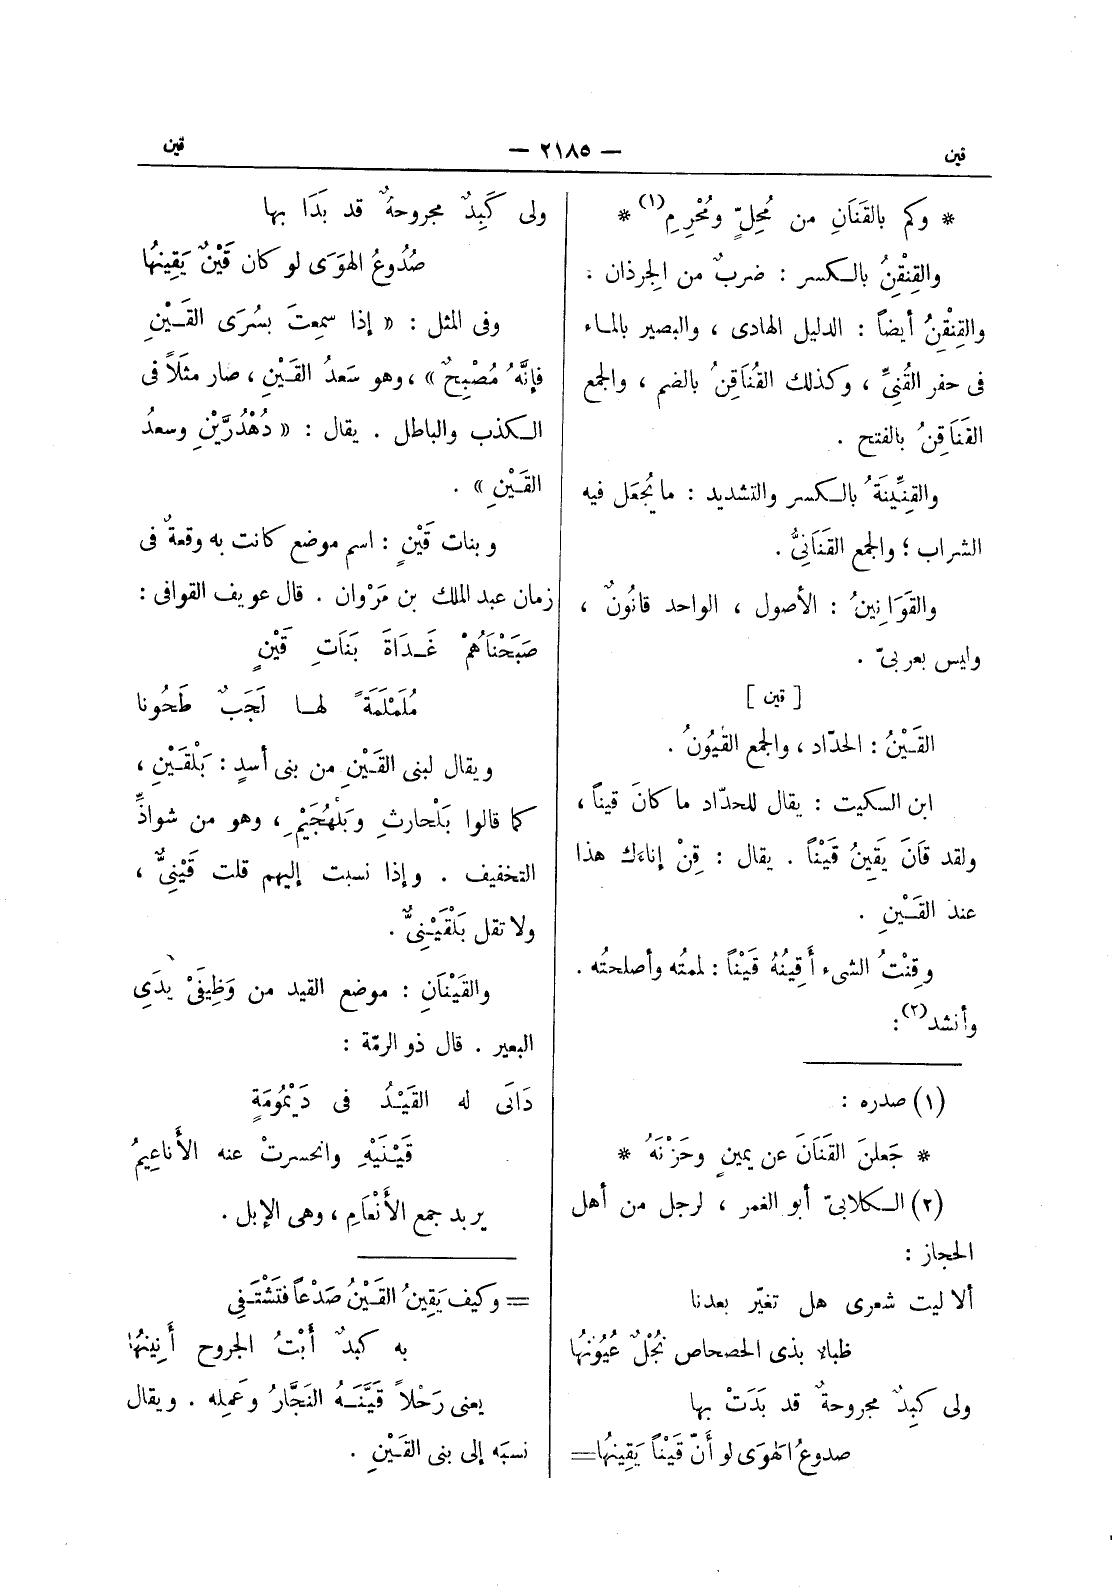 قين
— ٢١٨٥ —
قين
* وكم بالقَنَانِ من مُحِلٍّ ومُحْرِمِ(١) *
والقِنْقِنُ بالكسر : ضربٌ من الجرذان .
والقِنْقِنُ أيضاً : الدليل الهادى ، والبصير بالماء
فى حفر القُنِىِّ ، وكذلك القُنَاقِنُ بالضم ، والجمع
القَنَاقِنُ بالفتح .
والقِنِّينَةُ بالكسر والتشديد : ما يُجعَل فيه
الشراب ؛ والجمع القَنَانِىُّ .
والقَوَانِينُ : الأصول ، الواحد قانُونٌ ،
وليس بعربىّ .
[ قين ]
القَيْنُ : الحدّاد ، والجمع القُيُونُ .
ابن السكيت : يقال للحدّاد ما كانَ قيناً ،
ولقد قَانَ يَقِينُ قَيْناً . يقال : قِنْ إناءَك هذا
عند القَيْنِ .
وقِنْتُ الشىء أَقِينُهُ قَيْناً : لممتُه وأصلحتُه .
وأنشد(٢) :
(١) صدره :
* جَعلنَ القَنَانَ عن يمينٍ وحَزْنَهُ *
(٢) الكلابىّ أبو الغمر ، لرجل من أهل
الحجاز :
ألا ليت شعرى هل تغيّر بعدنا
ظباء بذى الحصحاص نُجْلٌ عُيُونُها
ولى كَبِدٌ مجروحةٌ قد بَدَتْ بها
صدوعُ الهَوَى لو أنّ قَيْناً يَقِينُها =
ولى كَبِدٌ مجروحةٌ قد بَدَا بها
صُدُوعُ الهَوَى لو كان قَيْنٌ يَقِينُها
وفى المثل : « إذا سمِعتَ بسُرَى القَيْنِ
فإنَّهُ مُصْبِحٌ » ، وهو سَعدُ القَيْنِ ، صار مثَلاً فى
الكذب والباطل . يقال : « دُهْدُرَّيْنِ وسعدُ
القَيْنِ » .
وبنات قَيْنٍ : اسم موضع كانت به وقعةٌ فى
زمان عبد الملك بن مَرْوان . قال عويف القوافى :
صَبَحْنَاهُمْ غَدَاةَ بَنَاتِ قَيْنٍ
مُلَمْلَمَةً لها لَجَبٌ طَحُونا
ويقال لبنى القَيْنِ من بنى أسدٍ : بَلْقَيْنِ ،
كما قالوا بَلْحارثِ وبَلْهُجَيْمِ ، وهو من شواذِّ
التخفيف . وإذا نسبت إليهم قلت قَيْنِىٌّ ،
ولا تقل بَلْقَيْنِىٌّ .
والقَيْنَانِ : موضع القيد من وَظِيفَىْ يدَىِ
البعير . قال ذو الرمّة :
دَانَى له القَيْدُ فى دَيْمُومَةٍ
قَيْنَيْهِ وانحسرتْ عنه الأَناعِيمُ
يريد جمع الأَنْعَامِ ، وهى الإبل .
= وكيف يَقِينُ القَيْنُ صَدْعاً فتَشْتَفِى
به كبدٌ أَبْتُ الجروح أَنِينُها
يعنى رَحْلاً قَيَّنَهُ النَجَّارُ وعَمِله . ويقال
نسبَه إلى بنى القَيْنِ .